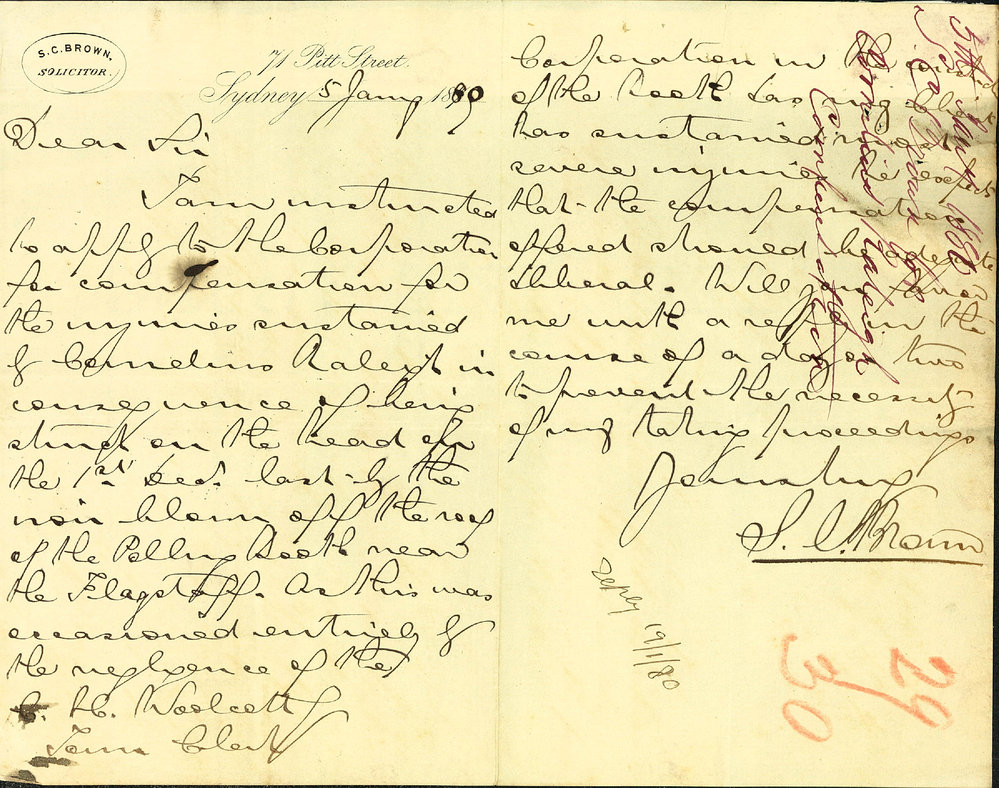 S. C. BROWN,
SOLICITOR.
71 Pitt Street.
Sydney 5 Jany 1880
Dear Sir
I am instructed
to apply to the Corporation
for compensation for
the injuries sustained
by Cornelius Raleigh in
consequence of being
struck on the head on
the 1st Decr. last by the
iron blown off the roof
of the Polling Booth near
the Flagstaff. As this was
occasioned entirely by
the negligence of the
C. H. Woolcott
Town Clerk
Corporation in the
of the Booth &
has sustained most
severe injuries he expects
that the compensation
offered should be
liberal. Will you favor
me with a reply in the
course of a day or two
to prevent the necessity
of my taking proceedings
Yours truly
S. C. Brown
5th Jany 1880
S. C. Brown
Cornelius Raleigh
Compensation
reply 19/1/80
29
30